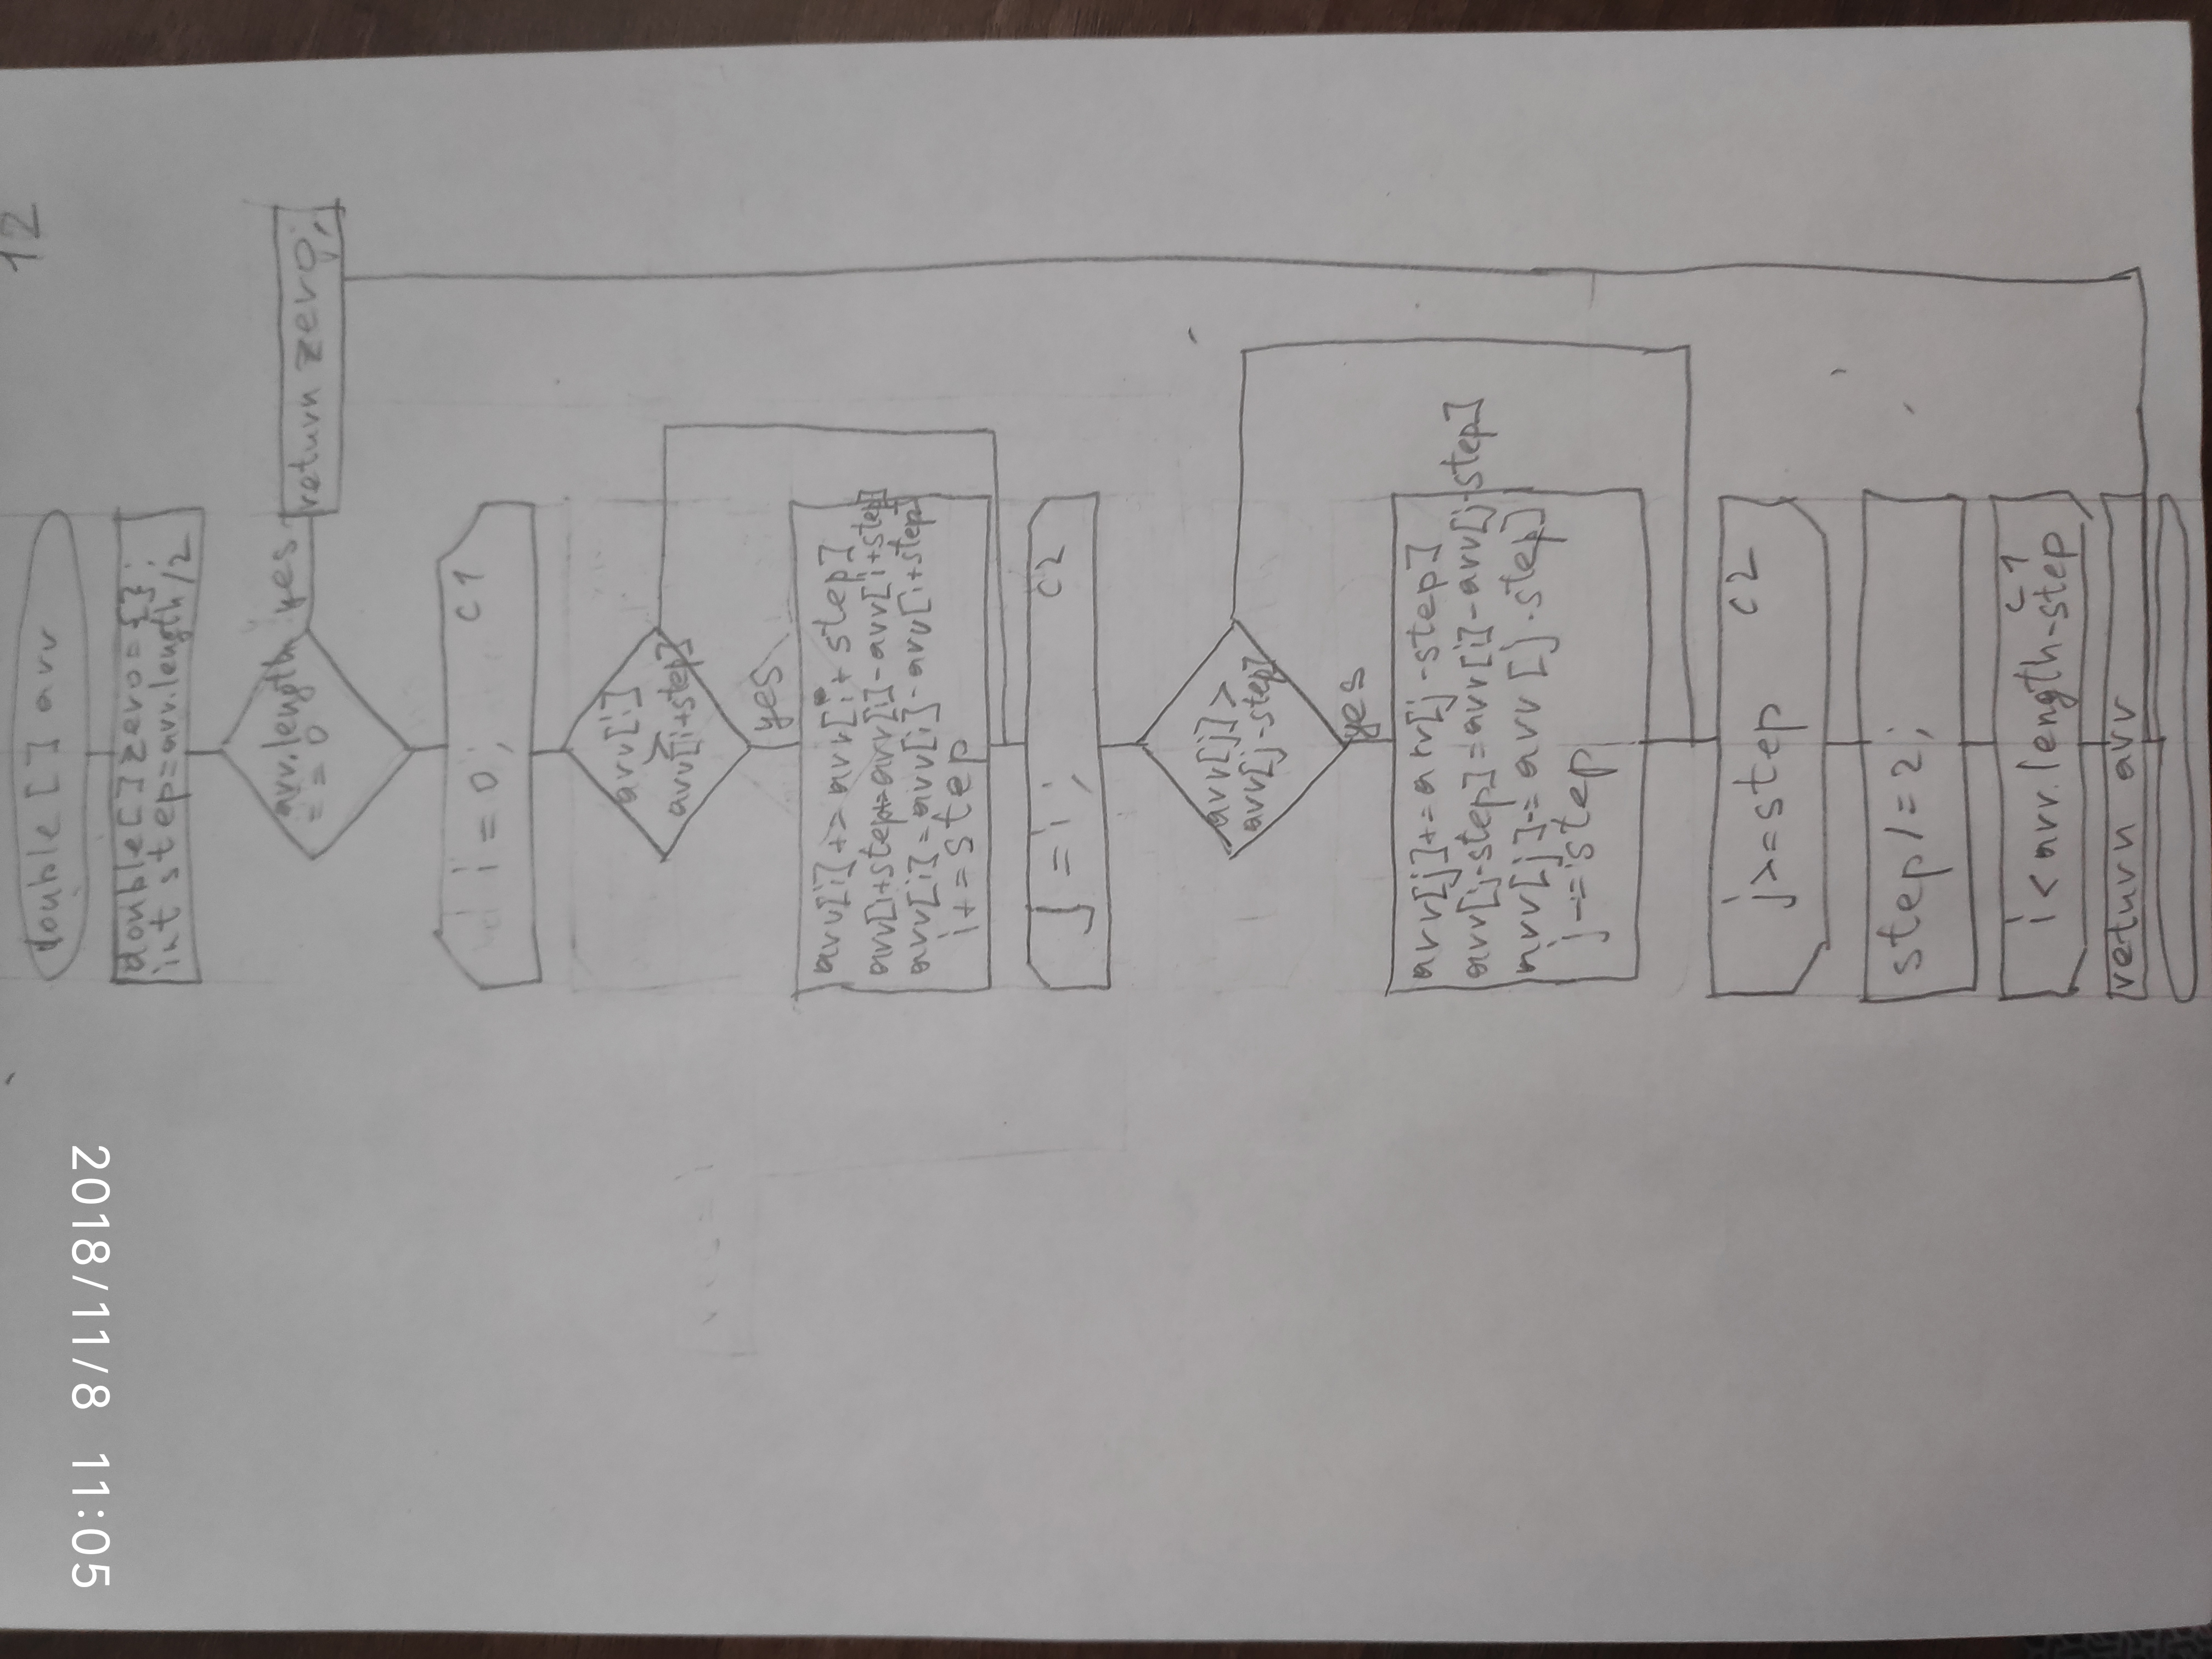 12
double[] arr
double[] zero={};
int step=arr.length/2
arr.length
==0
yes
return zero;
i=0; c1
arr[i]
>
arr[i+step]
yes
arr[i]+> arr[i+step]
arr[i]=arr[i]-arr[i+step]
i+=step
j=i; c2
arr[j]>
arr[j-step]
yes
arr[j]+=arr[j-step]
arr[j-step]=arr[j]-arr[j-step]
arr[j]-=arr[j-step]
j-=step
j>=step c2
step/=2;
i<arr.length-step
c1
return arr
2018/11/8 11:05